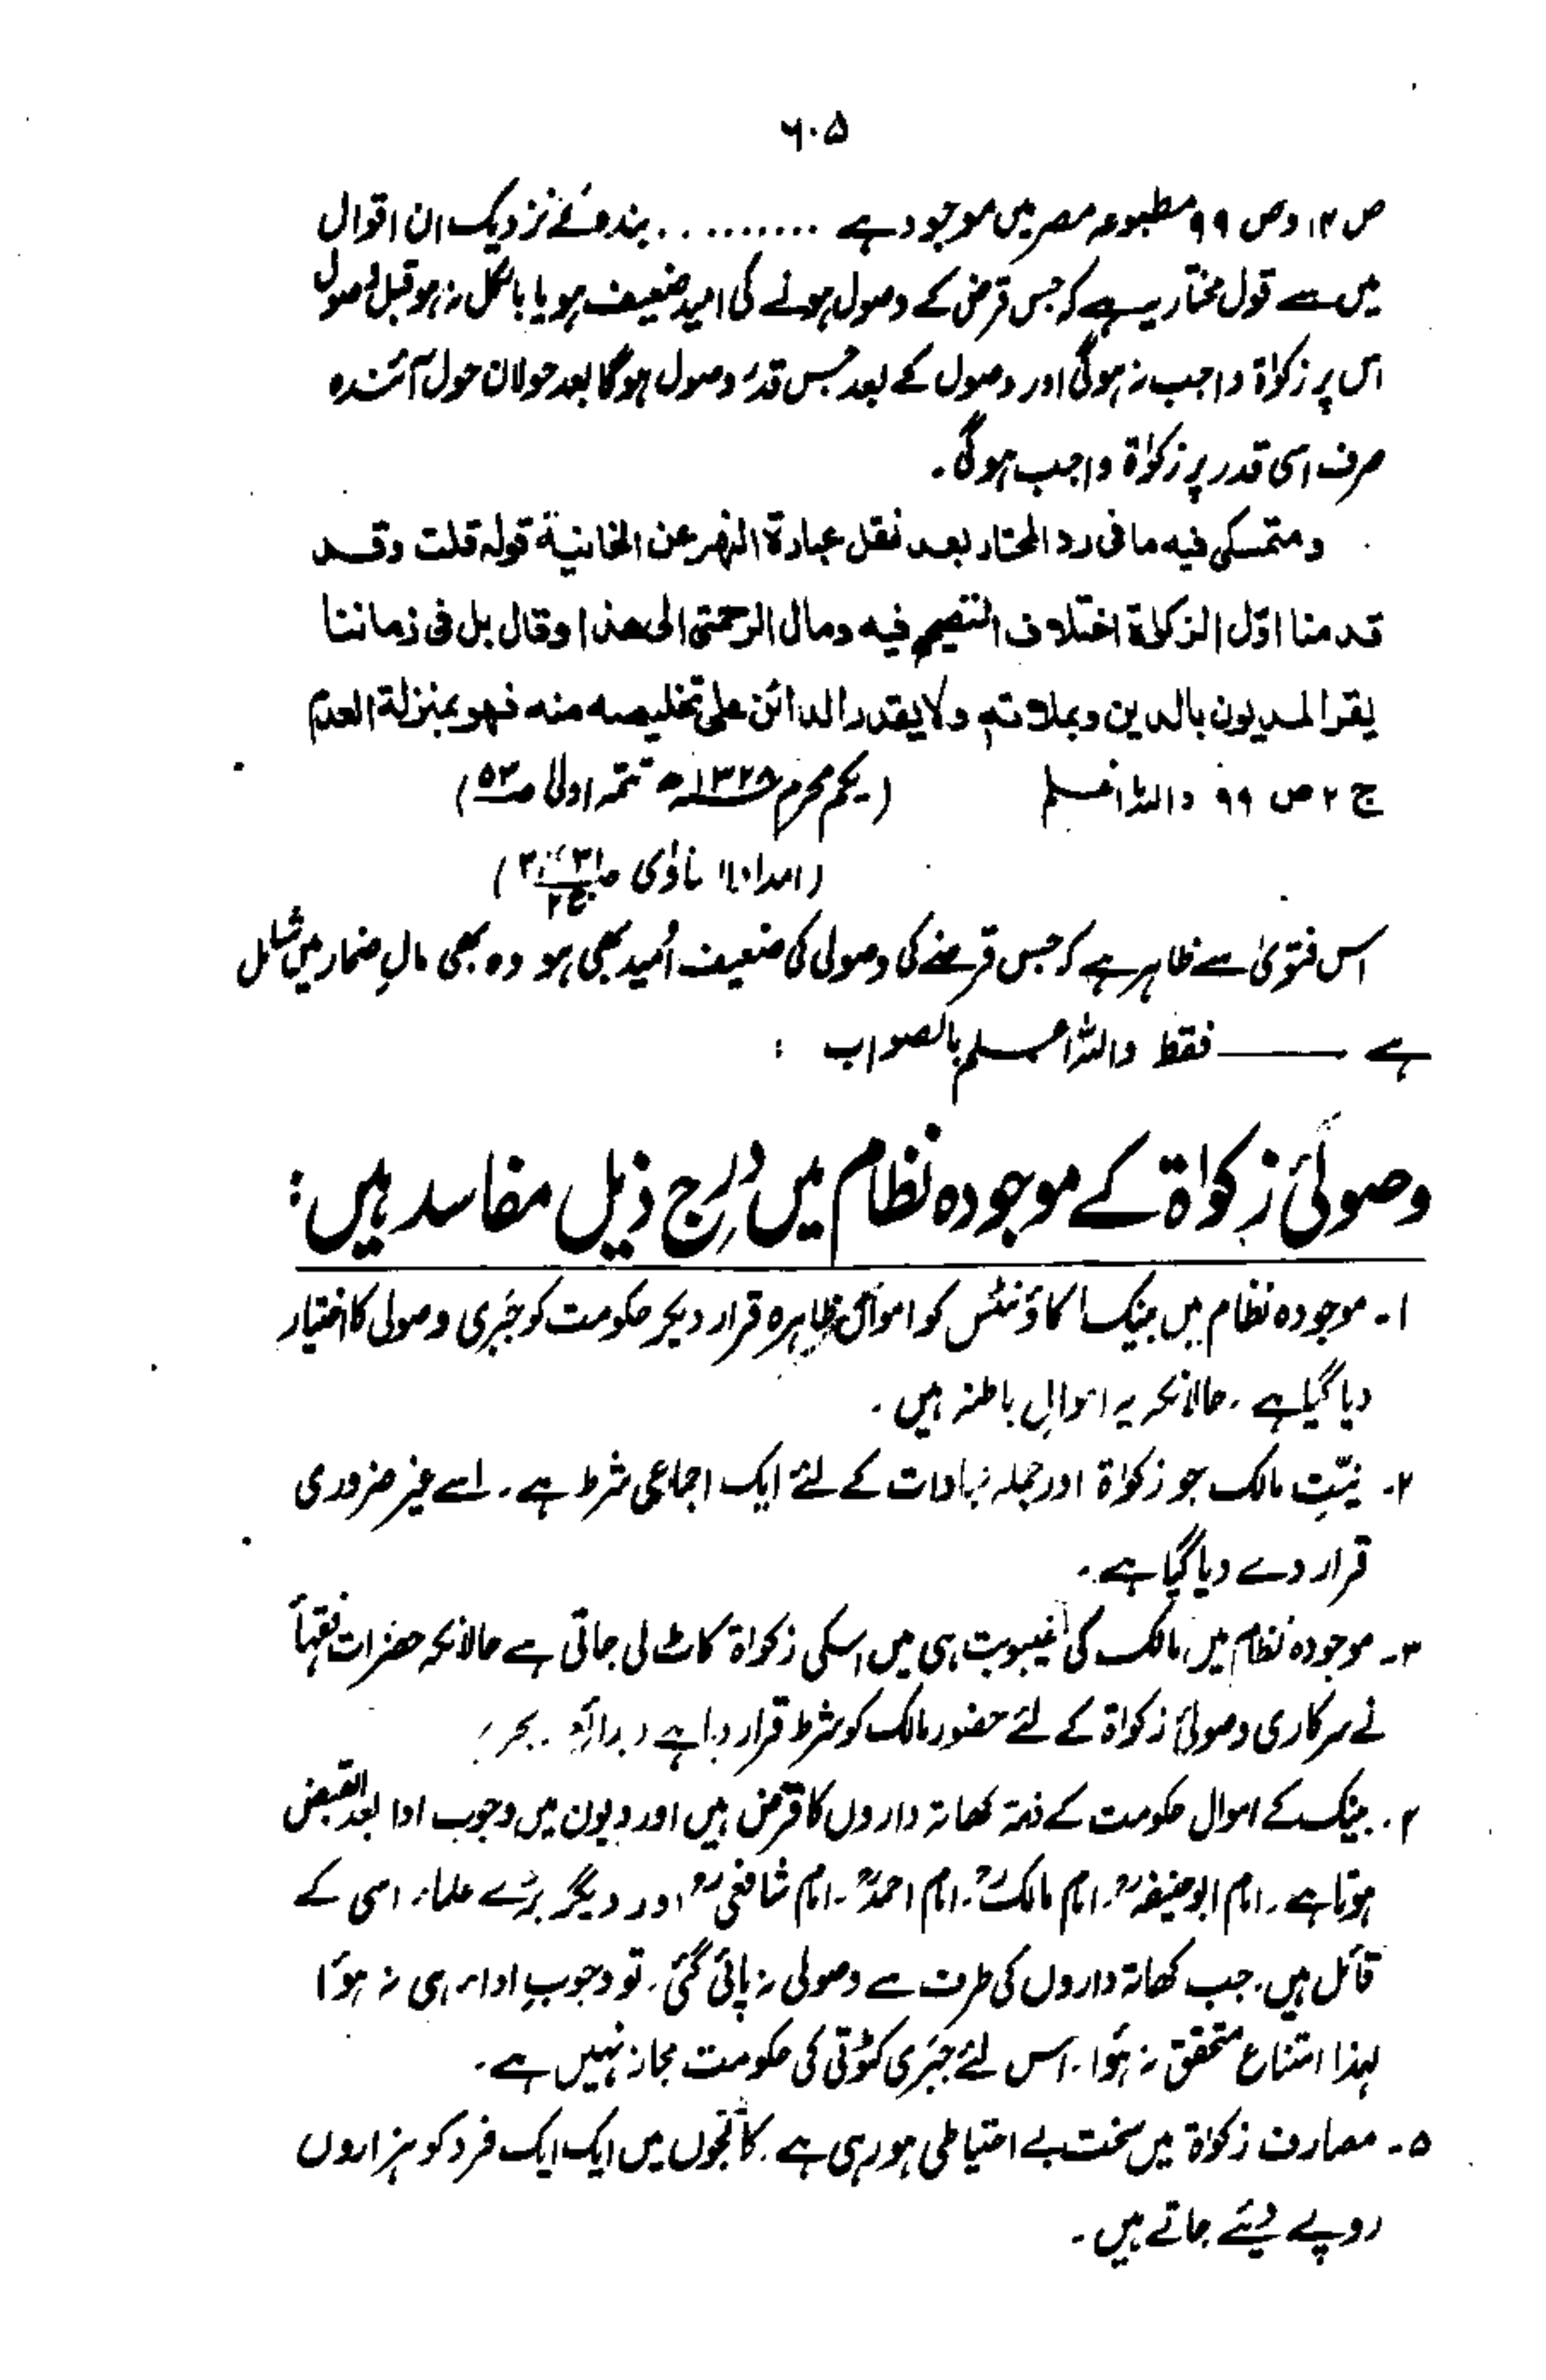 ۶۰۵
ص ۱۲ وص ۹۹ مطبوعہ مصر میں موجود ہے .......... بندہ کے نزدیک ان اقوال
میں سے قول مختار یہ ہے کہ جس قرض کے وصول ہونے کی امید ضعیف ہو یا بالکل نہ ہو قبل وصول
اس پر زکوٰۃ واجب نہ ہوگی اور وصول کے بعد جس قدر وصول ہوگا بعد حولان حول آئندہ
صرف اسی قدر پر زکوٰۃ واجب ہوگی۔
ومتمسکی فیہ ما فی رد المحتار بعد نقل عبارة النھر عن الخانیة قولہ قلت وقد
قدمنا اوّل الزکوٰة اختلاف التصحیح فیہ ومال الرحمتی الی ھذا وقال بل فی زماننا
یقر المدیون بالدین وبملاءتہ ولا یقدر الدائن علی تخلیصہ منہ فھو بمنزلة العدم
ج ۲ ص ۹۹ واللہ اعلم (یکم محرم ۱۳۲۸ھ تتمہ اولیٰ ص ۵۳)
(امداد الفتاوٰی ج۲)
اس فتویٰ سے ظاہر ہے کہ جس قرضے کی وصولی کی ضعیف اُمید بھی ہو وہ بھی مالِ ضمار میں شامل
ہے ——— فقط واللہ اعلم بالصواب :
وصولیٔ زکواۃ کے موجودہ نظام میں درج ذیل مفاسد ہیں:
۱۔ موجودہ نظام میں بینک اکاؤنٹس کو اموالِ ظاہرہ قرار دیکر حکومت کو جبری وصولی کا اختیار
دیا گیا ہے۔ حالانکہ یہ اموالِ باطنہ ہیں۔
۲۔ نیّتِ مالک جو زکوٰۃ اور جملہ عبادات کے لئے ایک اجماعی شرط ہے۔ اسے غیر ضروری
قرار دے دیا گیا ہے۔
۳۔ موجودہ نظام میں مالک کی غیبوبت ہی میں اسکی زکواۃ کاٹ لی جاتی ہے حالانکہ حضرات فقہاءٔ
نے سرکاری وصولیٔ زکواۃ کے لئے حضور مالک کو شرط قرار دیا ہے (بدائع۔ بحر)
۴۔ بینک کے اموال حکومت کے ذمہ کھاتہ داروں کا قرض ہیں اور دیون میں وجوب ادا بعد القبض
ہوتا ہے۔ امام ابوحنیفہؒ۔ امام مالکؒ۔ امام احمدؒ۔ امام شافعیؒ اور دیگر بڑے علماء اسی کے
قائل ہیں۔ جب کھاتہ داروں کی طرف سے وصولی نہ پائی گئی۔ تو وجوبِ اداء ہی نہ ہوا
لہذا امتناع متحقق نہ ہوا۔ اس لئے جبری کٹوتی کی حکومت مجاز نہیں ہے۔
۵۔ مصارف زکواۃ میں سخت بے احتیاطی ہو رہی ہے۔ کالجوں میں ایک ایک فرد کو ہزاروں
روپے دیئے جاتے ہیں۔